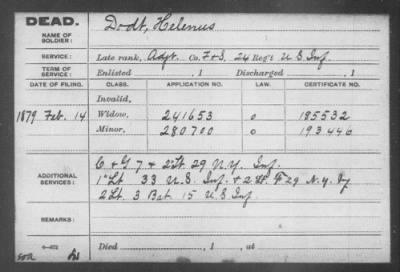 DEAD.
NAME OF SOLDIER:
Dodt, Helenus
SERVICE:
Late rank, Adjt. Co. F & S, 24 Reg't U.S. Inf.
TERM OF SERVICE:
Enlisted , 1 Discharged , 1
DATE OF FILING. CLASS. APPLICATION NO. LAW. CERTIFICATE NO.
Invalid,
1879 Feb. 14 Widow, 241653 o 185532
Minor, 280700 o 193446
ADDITIONAL SERVICES:
C & G 7 & 2 Lt 29 N.Y. Inf.
1st Lt 33 U.S. Inf. & 2 Lt. F 29 N.Y.
2 Lt. 3 Bat. 15 U.S. Inf.
REMARKS:
Died , 1 , at